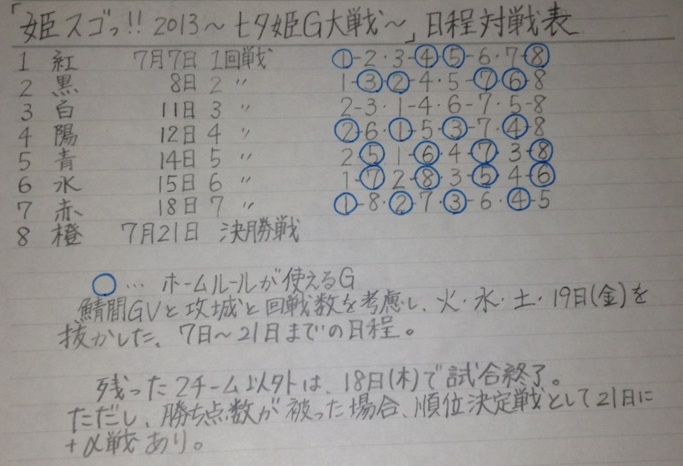 「姫スゴっ!! 2013～七夕姫G大戦～」日程対戦表
1 紅 7月7日 1回戦 ①-2・3-④⑤-6・7-⑧
2 黒 8日 2 〃 1-③②-4・5-⑦⑥-8
3 白 11日 3 〃 2-3・1-4・6-7・5-8
4 陽 12日 4 〃 ②-6・①-5・③-7・④-8
5 青 14日 5 〃 2-⑤ 1-⑥・4-⑦ 3-⑧
6 水 15日 6 〃 1-⑦ 2-⑧・3-⑤ 4-⑥
7 赤 18日 7 〃 ①-8・②-7・③-6・④-5
8 橙 7月21日 決勝戦
○… ホームルールが使えるG
鯖間GVと攻城と回戦数を考慮し、火・水・土・19日(金)を
抜かした、7日～21日までの日程。
残った2チーム以外は、18日(木)で試合終了。
ただし、勝ち点数が被った場合、順位決定戦として21日に
+α戦あり。